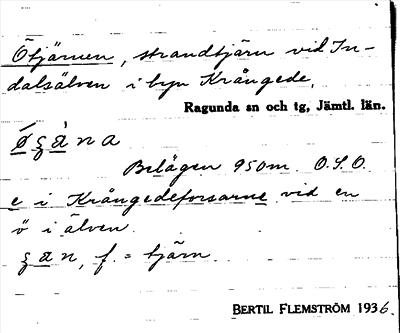 Ötjärnen, strandtjärn vid In-
dalsälven i byn Krångede,
Ragunda sn och tg, Jämtl. län.
Belägen 950m. O.S.O.
e i Krångedeforsarne vid en
ö i älven.
f. = tjärn.
BERTIL FLEMSTRÖM 1936.